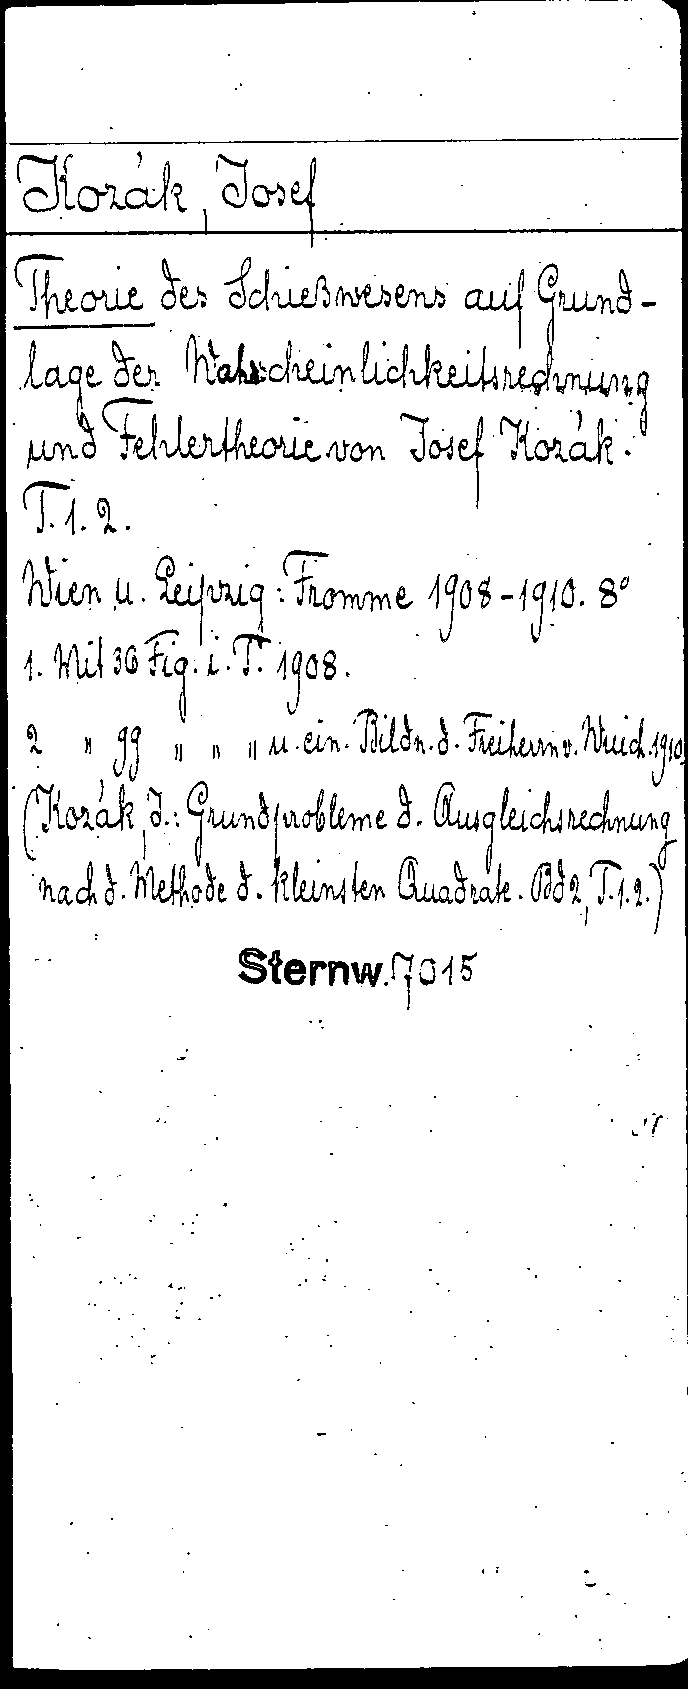 Kozák, Josef
Theorie des Schießwesens auf Grund-
lage der Wahrscheinlichkeitsrechnung
und Fehlertheorie von Josef Kozák.
T. 1. 2.
Wien u. Leipzig: Fromme 1908-1910. 8°
1. Mit 36 Fig. i. T. 1908.
2 " 99 " " " u. ein. Bildn. d. Freiherrn v. Wuich. 1910.
(Kozák, J.: Grundprobleme d. Ausgleichsrechnung
nach d. Methode d. kleinsten Quadrate. Bd 2, T. 1. 2.)
Sternw. 7015